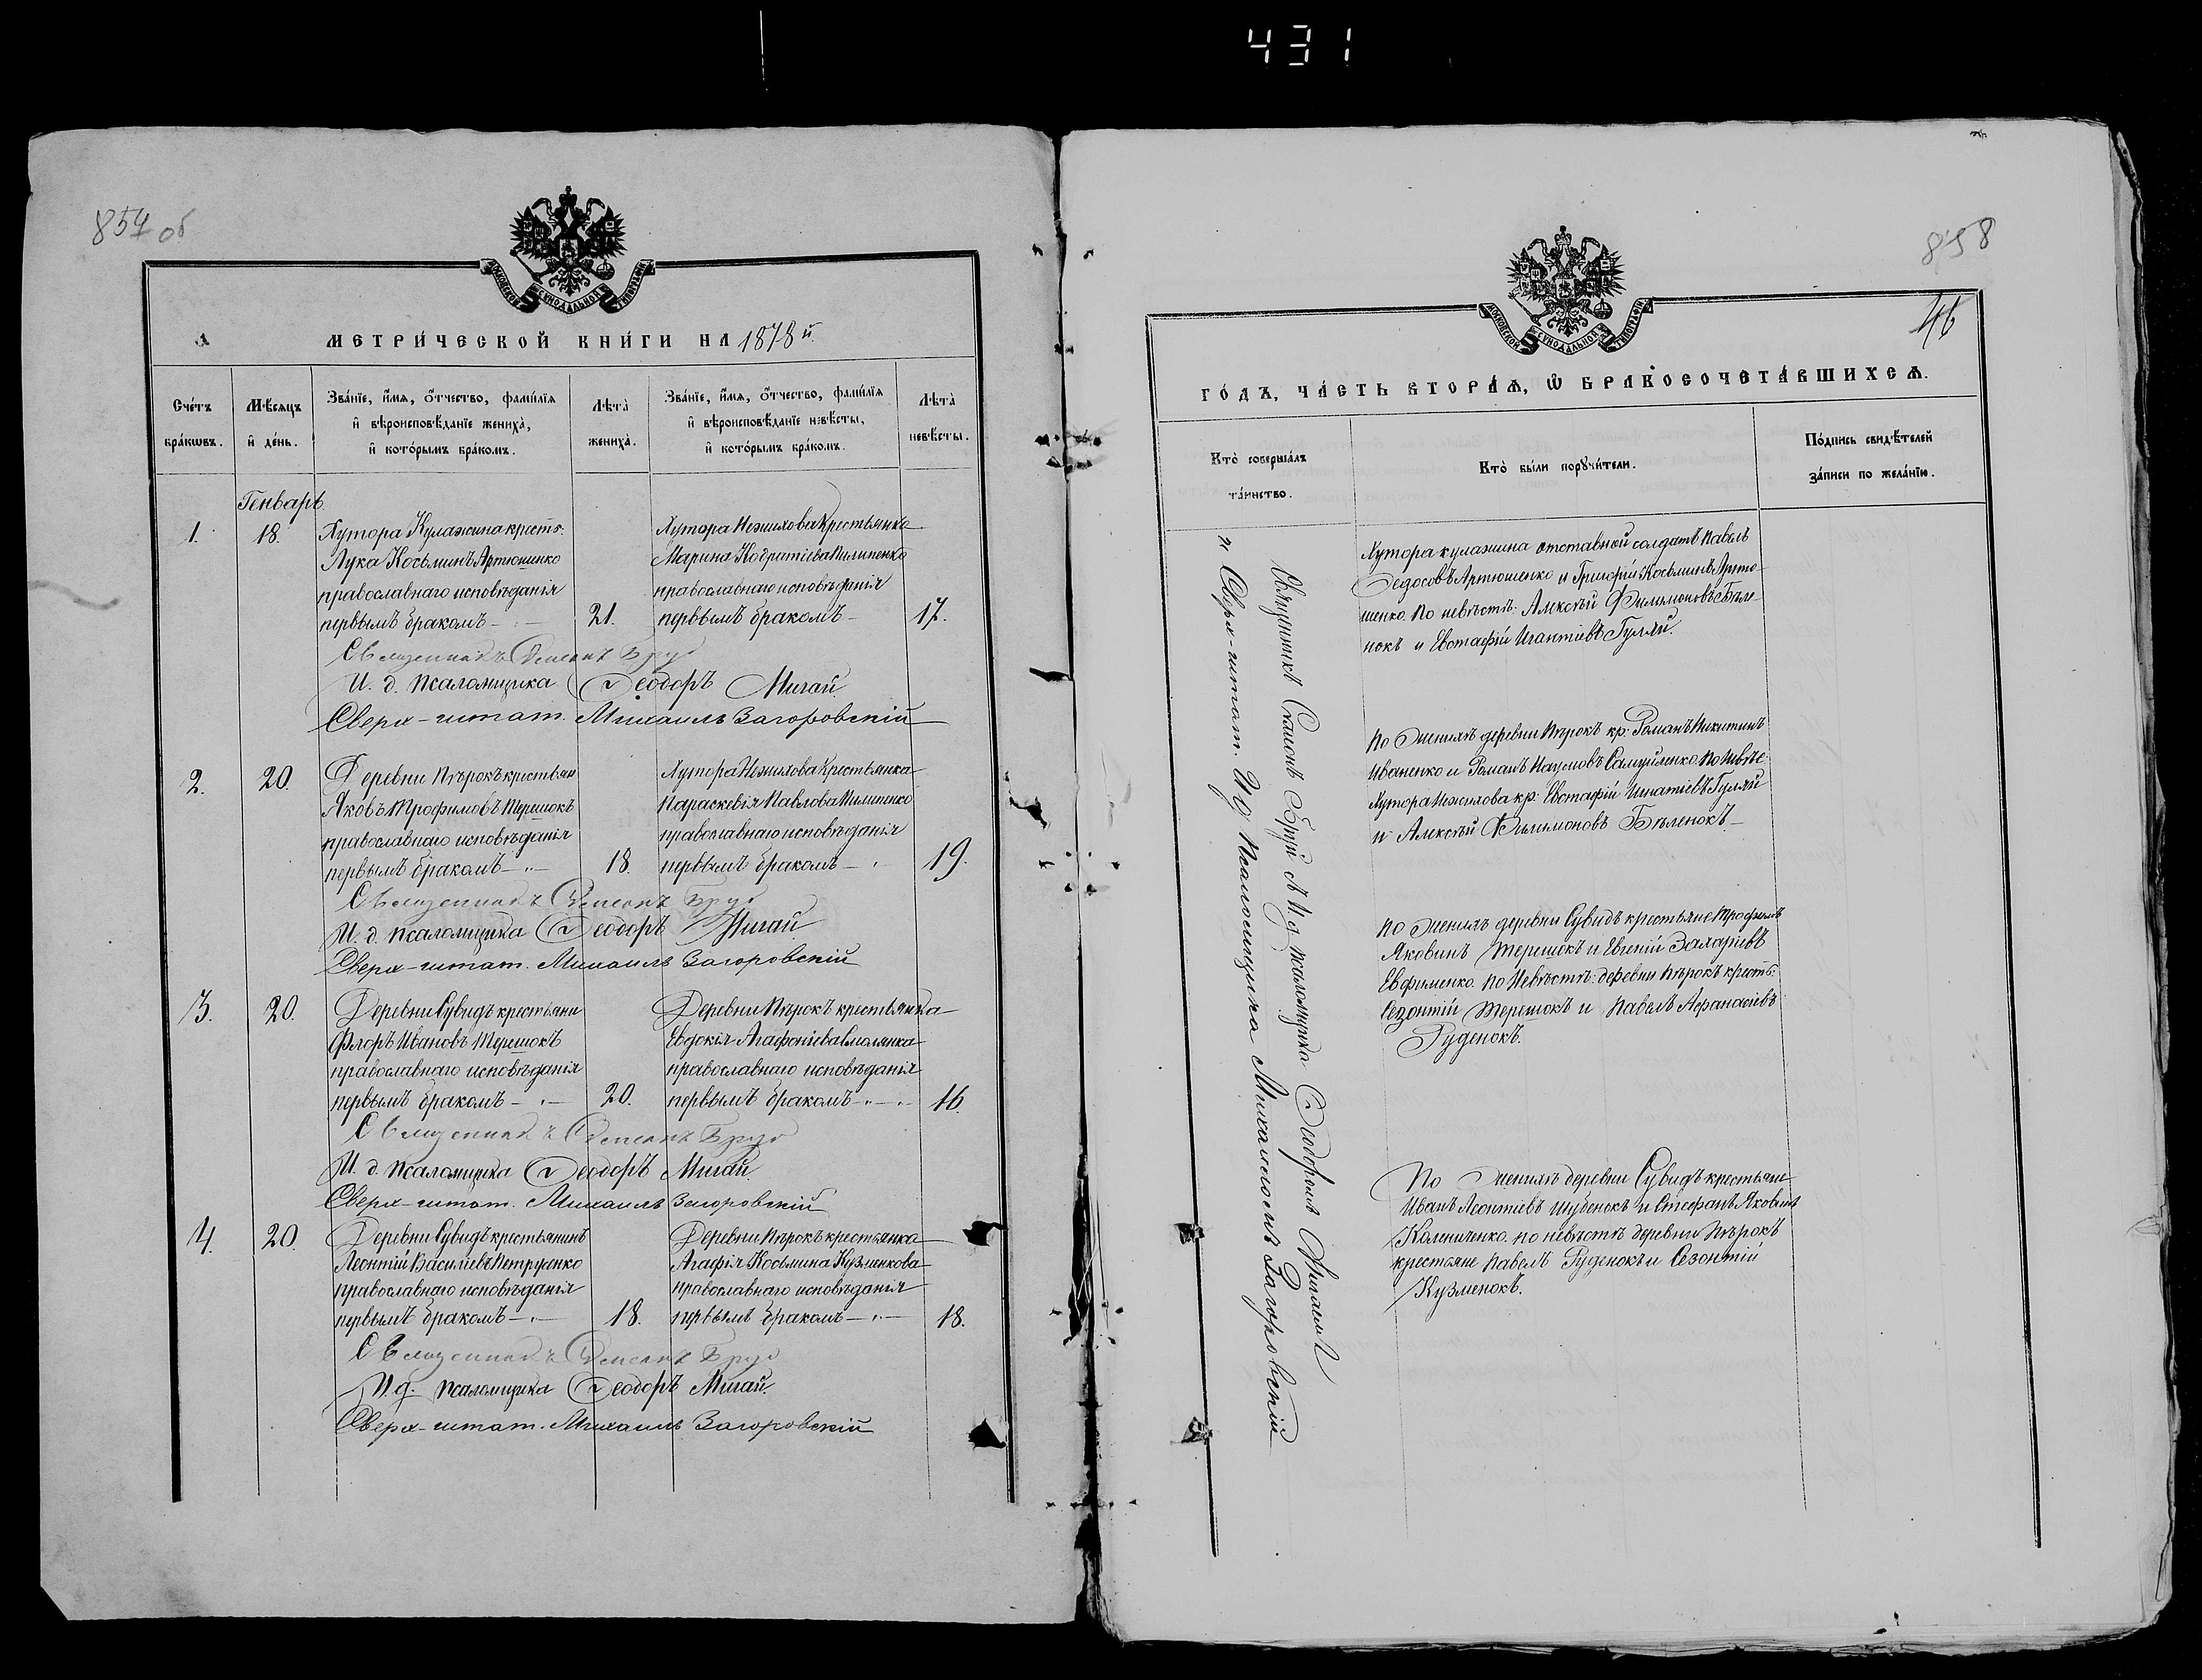 431
857 об
МОСКОВСКОЙ СѴНОДАЛЬНОЙ ТИПОГРАФІИ
МЕТРИ́ЧЕСКОЙ КНИ́ГИ НА 1878й.
Сче́тъ бра́кѡвъ.
Мѣ́сяцъ и҆ де́нь.
Зва́нїе, и҆́мѧ, ѻ҆́тчество, фамі́лїѧ и҆ вѣроисповѣ́данїе жениха̀, и҆ кото́рымъ бра́комъ.
Лѣ́та̀ жениха̀.
Зва́нїе, и҆́мѧ, ѻ҆́тчество, фамі́лїѧ и҆ вѣроисповѣ́данїе невѣ́сты, и҆ кото́рымъ бра́комъ.
Лѣ́та̀ невѣ́сты.
Генварь.
1. 18.
Хутора Кулажина крестъ.
Лука Косьминъ Артюшенко
православнаго исповѣданія
первымъ бракомъ – 21.
Хутора Нежилова Крестьянка
Марина Кодратіева Пилипенко
православнаго исповѣданія
первымъ бракомъ – 17.
Священникъ Симеонъ
И. д. псаломщика Ѳеодоръ Мигай
Сверх-штат. Михаилъ Загоровскій
2. 20.
Деревни Пѣрокъ крестьян
Яковъ Трофимовъ Терешокъ
православнаго исповѣданія
первымъ бракомъ – 18.
Хутора Нежилова Крестьянка
Параскевія Павлова Пилипенко
православнаго исповѣданія
первымъ бракомъ – 19.
Священникъ Симеонъ
И. д. псаломщика Ѳеодоръ Мигай
Сверх-штат. Михаилъ Загоровскій
3. 20.
Деревни Сувидъ крестьяни
Флоръ Ивановъ Терешокъ
православнаго исповѣданія
первымъ бракомъ – 20.
Деревни Пѣрокъ крестьянка
Евдокія Агафоніева Смолянка
православнаго исповѣданія
первымъ бракомъ – 16.
Священникъ Симеонъ
И. д. псаломщика Ѳеодоръ Мигай.
Сверх-штат. Михаилъ Загоровскій
4. 20.
Деревни Сувидъ крестьянинъ
Леонтій Василіевъ Петрусенко
православнаго исповѣданія
первымъ бракомъ – 18.
Деревни Пѣрокъ крестьянка
Агафія Косьмина Кузменкова
православнаго исповѣданія
первымъ бракомъ – 18.
Священникъ Симеонъ
И. д. псаломщика Ѳеодоръ Мигай.
Сверх-штат. Михаилъ Загоровскій
858
46
МОСКОВСКОЙ СѴНОДАЛЬНОЙ ТИПОГРАФІИ
ГО́ДЪ, ЧА́СТЬ ВТОРА́Ѧ, Ѽ БРАКОСОЧЕТА́ВШИХСѦ.
Кто̀ соверша́лъ та́инство.
Кто̀ бы́ли порꙋчи́тели.
По́дпись свидѣ́телей за́писи по жела́нїю.
Священникъ Симеонъ
И. д. псаломщика Ѳеодоромъ Мигаемъ
и Сверх-штат. И. д. Псаломщика Михаиломъ Загоровскій
Хутора кулажина отставной солдатъ Павелъ
Ѳедосовъ Артюшенко и Григорій Косьминъ Артю-
шенко. По невѣстѣ: Алексѣй Филимоновъ Бѣле-
нокъ и Евстафій Игнатіевъ Гуляй.
По Женихѣ деревни Пѣрокъ кр: Романъ Никитинъ
Иваненко и Романъ Наумовъ Самуйленко. По Невѣс:
Хутора Нежилова кр: Евстафій Игнатіевъ Гуляй
и Алексѣй Филимоновъ Бѣленокъ –
По Женихѣ деревни Сувидъ крестьяне Трофимъ
Яковинъ Терешокъ и Евгеній Захаріевъ
Евфименко. По Невѣстѣ: деревни Пѣрокъ крестъ:
Созонтій Терешокъ и Павелъ Афанасіевъ
Руденокъ.
По Женихѣ деревни Сувидъ крестьяни
Иванъ Леонтіевъ Шубенокъ и Стефанъ Яковинъ
Колениченко. по невѣстѣ деревни Пѣрокъ
крестяне Павелъ Руденокъ и Созонтій
Кузменокъ.